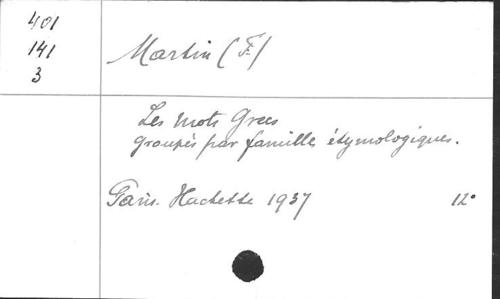 401
141
3
Martin (F)
Les mots Grecs
groupés par famille étymologiques.
Paris. Hachette 1937 12°